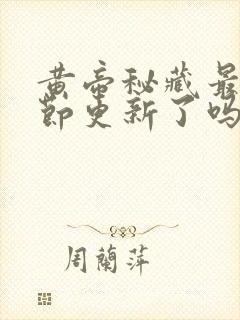 黄帝秘藏最
节更新了吗
周蘭萍